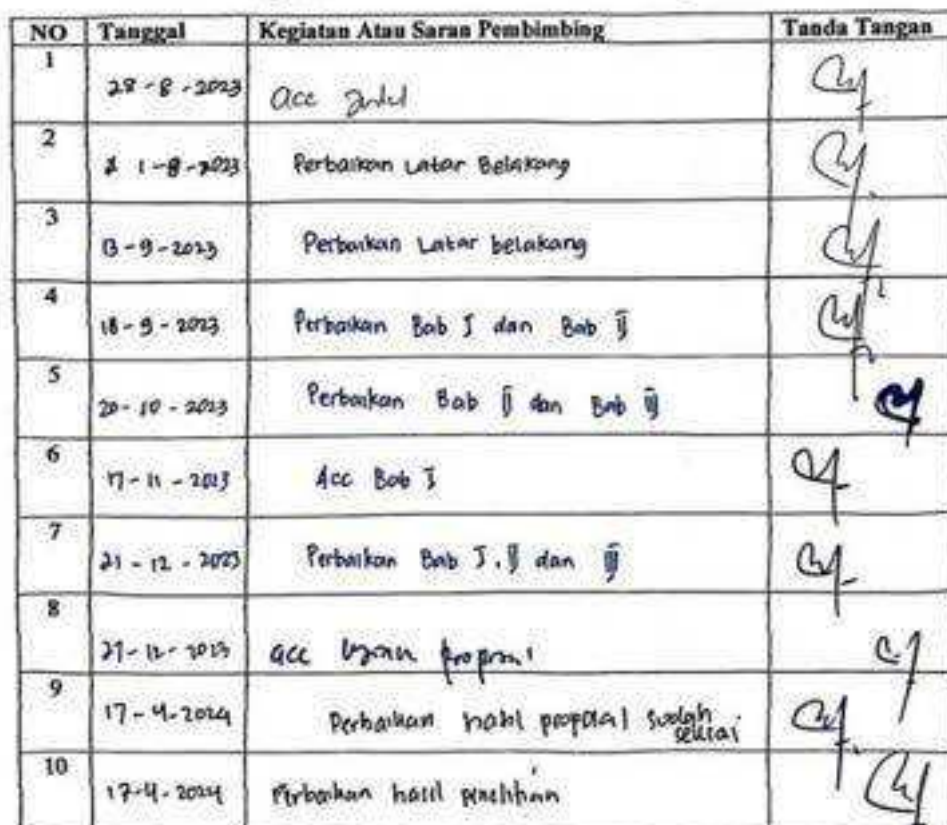 NO Tanggal Kegiatan Atau Saran Pembimbing Tanda Tangan
1 28-8-2023 acc judul
2 1-8-2023 Perbaikan Latar Belakang
3 13-9-2023 Perbaikan Latar belakang
4 18-9-2023 Perbaikan Bab I dan Bab II
5 20-10-2023 Perbaikan Bab II dan Bab III
6 17-11-2023 Acc Bab I
7 21-12-2023 Perbaikan Bab I, II dan III
8 27-12-2023 acc
9 17-4-2024 Perbaikan hasil proposal sudah
selesai
10 17-4-2024 Perbaikan hasil penelitian